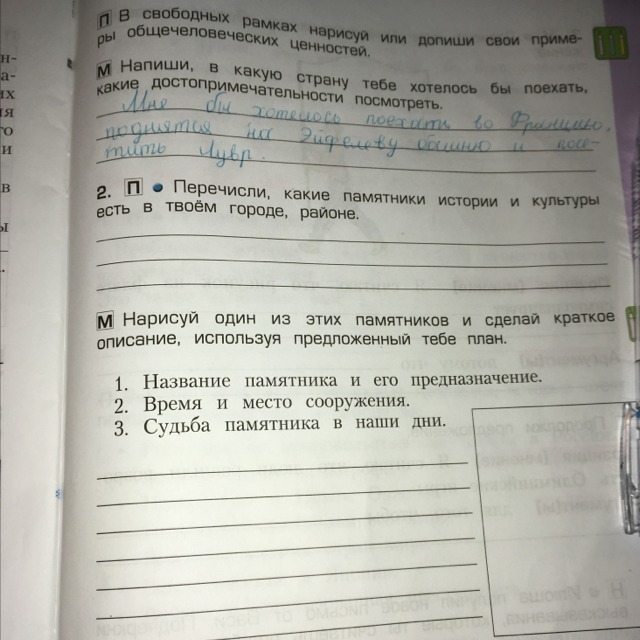 П В свободных рамках нарисуй или допиши свои приме-
ры общечеловеческих ценностей.
М Напиши, в какую страну тебе хотелось бы поехать,
какие достопримечательности посмотреть.
Мне бы хотелось поехать во Францию,
поднятся на Эйфелеву башню и посе-
тить Лувр.
2. П • Перечисли, какие памятники истории и культуры
есть в твоём городе, районе.
М Нарисуй один из этих памятников и сделай краткое
описание, используя предложенный тебе план.
1. Название памятника и его предназначение.
2. Время и место сооружения.
3. Судьба памятника в наши дни.